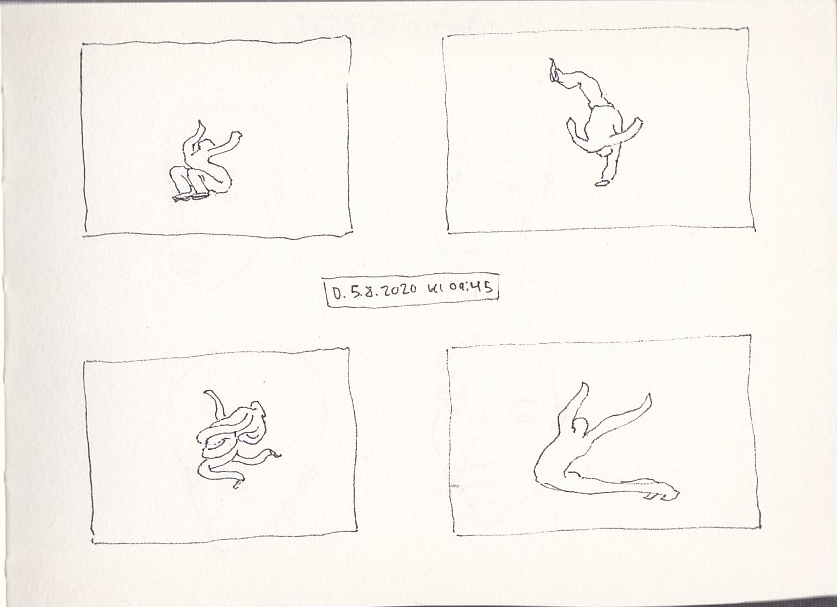 D. 5.8.2020 kl 09:45